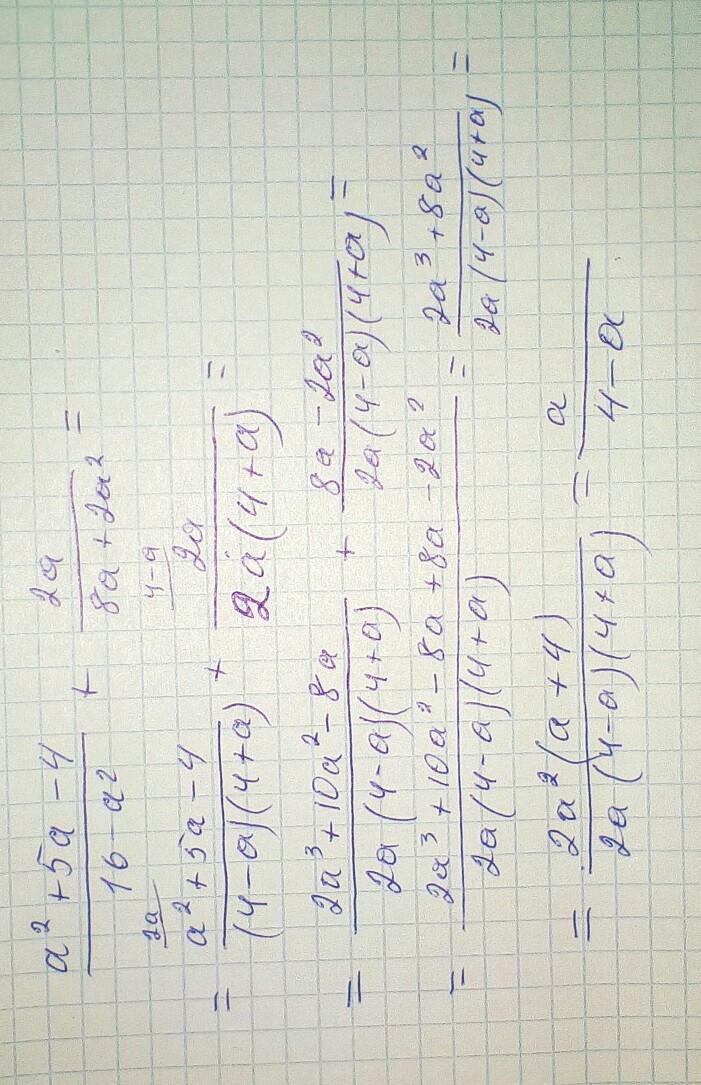 a² + 5a - 4 / 16 - a² + 2a / 8a + 2a² =
= 2a/ a² + 5a - 4 / (4-a)(4+a) + 4-a/ 2a / 2a(4+a) =
= 2a³ + 10a² - 8a / 2a(4-a)(4+a) + 8a - 2a² / 2a(4-a)(4+a) =
= 2a³ + 10a² - 8a + 8a - 2a² / 2a(4-a)(4+a) = 2a³ + 8a² / 2a(4-a)(4+a) =
= 2a²(a+4) / 2a(4-a)(4+a) = a / 4-a